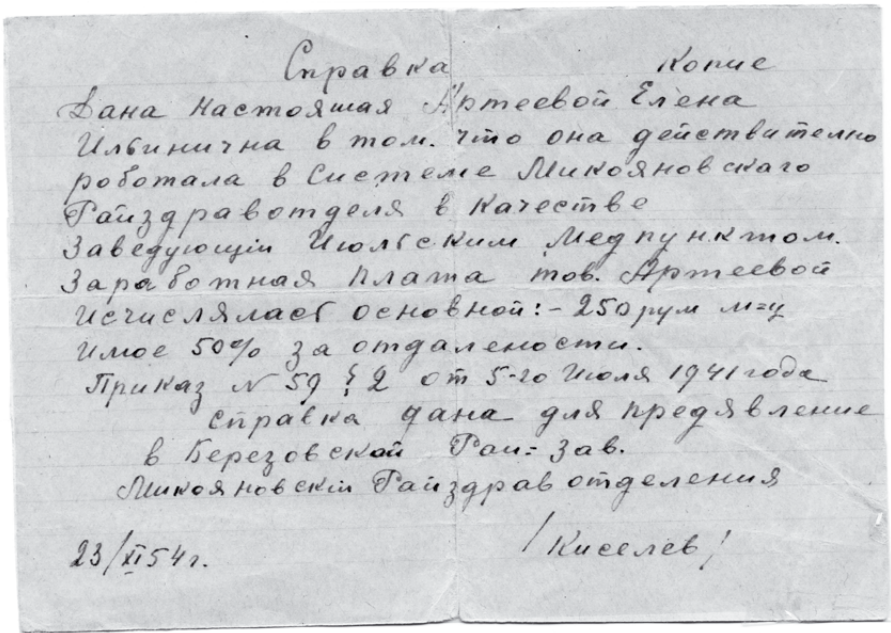 Справка Копие
Дана настояшая Артеевой Елена
Ильинична в том. что она действително
роботала в Системе Микояновскаго
Райздравотделя в качестве
Заведующіи Июльским Медпунктом.
Заработная плата тов. Артеевой
исчислялась основной:- 250 рум м=ц
имое 50% за отдалености.
Приказ № 59 § 2 от 5-го Июля 1941 года
справка дана для предявление
в Березовской Раи= Зав.
Микояновскіи Райздравотделения
23/XI 54 г. /Киселев/